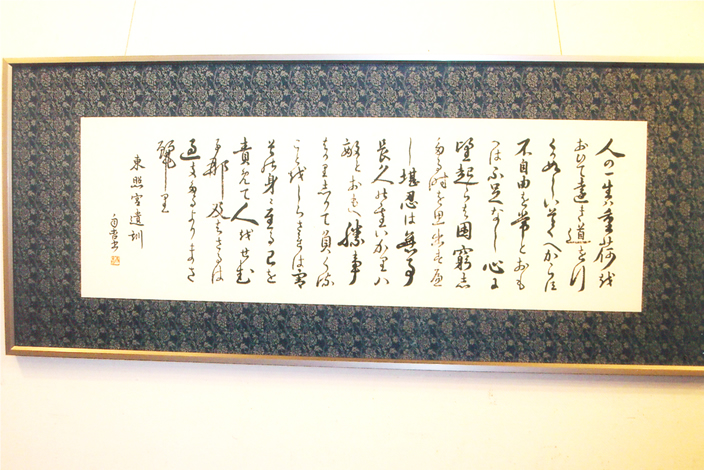 人の一生は重荷を
おひて遠き道を行
くへからす
不自由を常とおも
へは不足なし心に
望起らは困窮し
たる時を思出すへ
し堪忍は無事
長久の基いかりハ
敵とおもへ勝事
はかり知りて負くる
ことをしらされは害
其身に至る己を
責て人をせむ
るな及はさるは
過きたるよりまさ
れり
東照宮遺訓